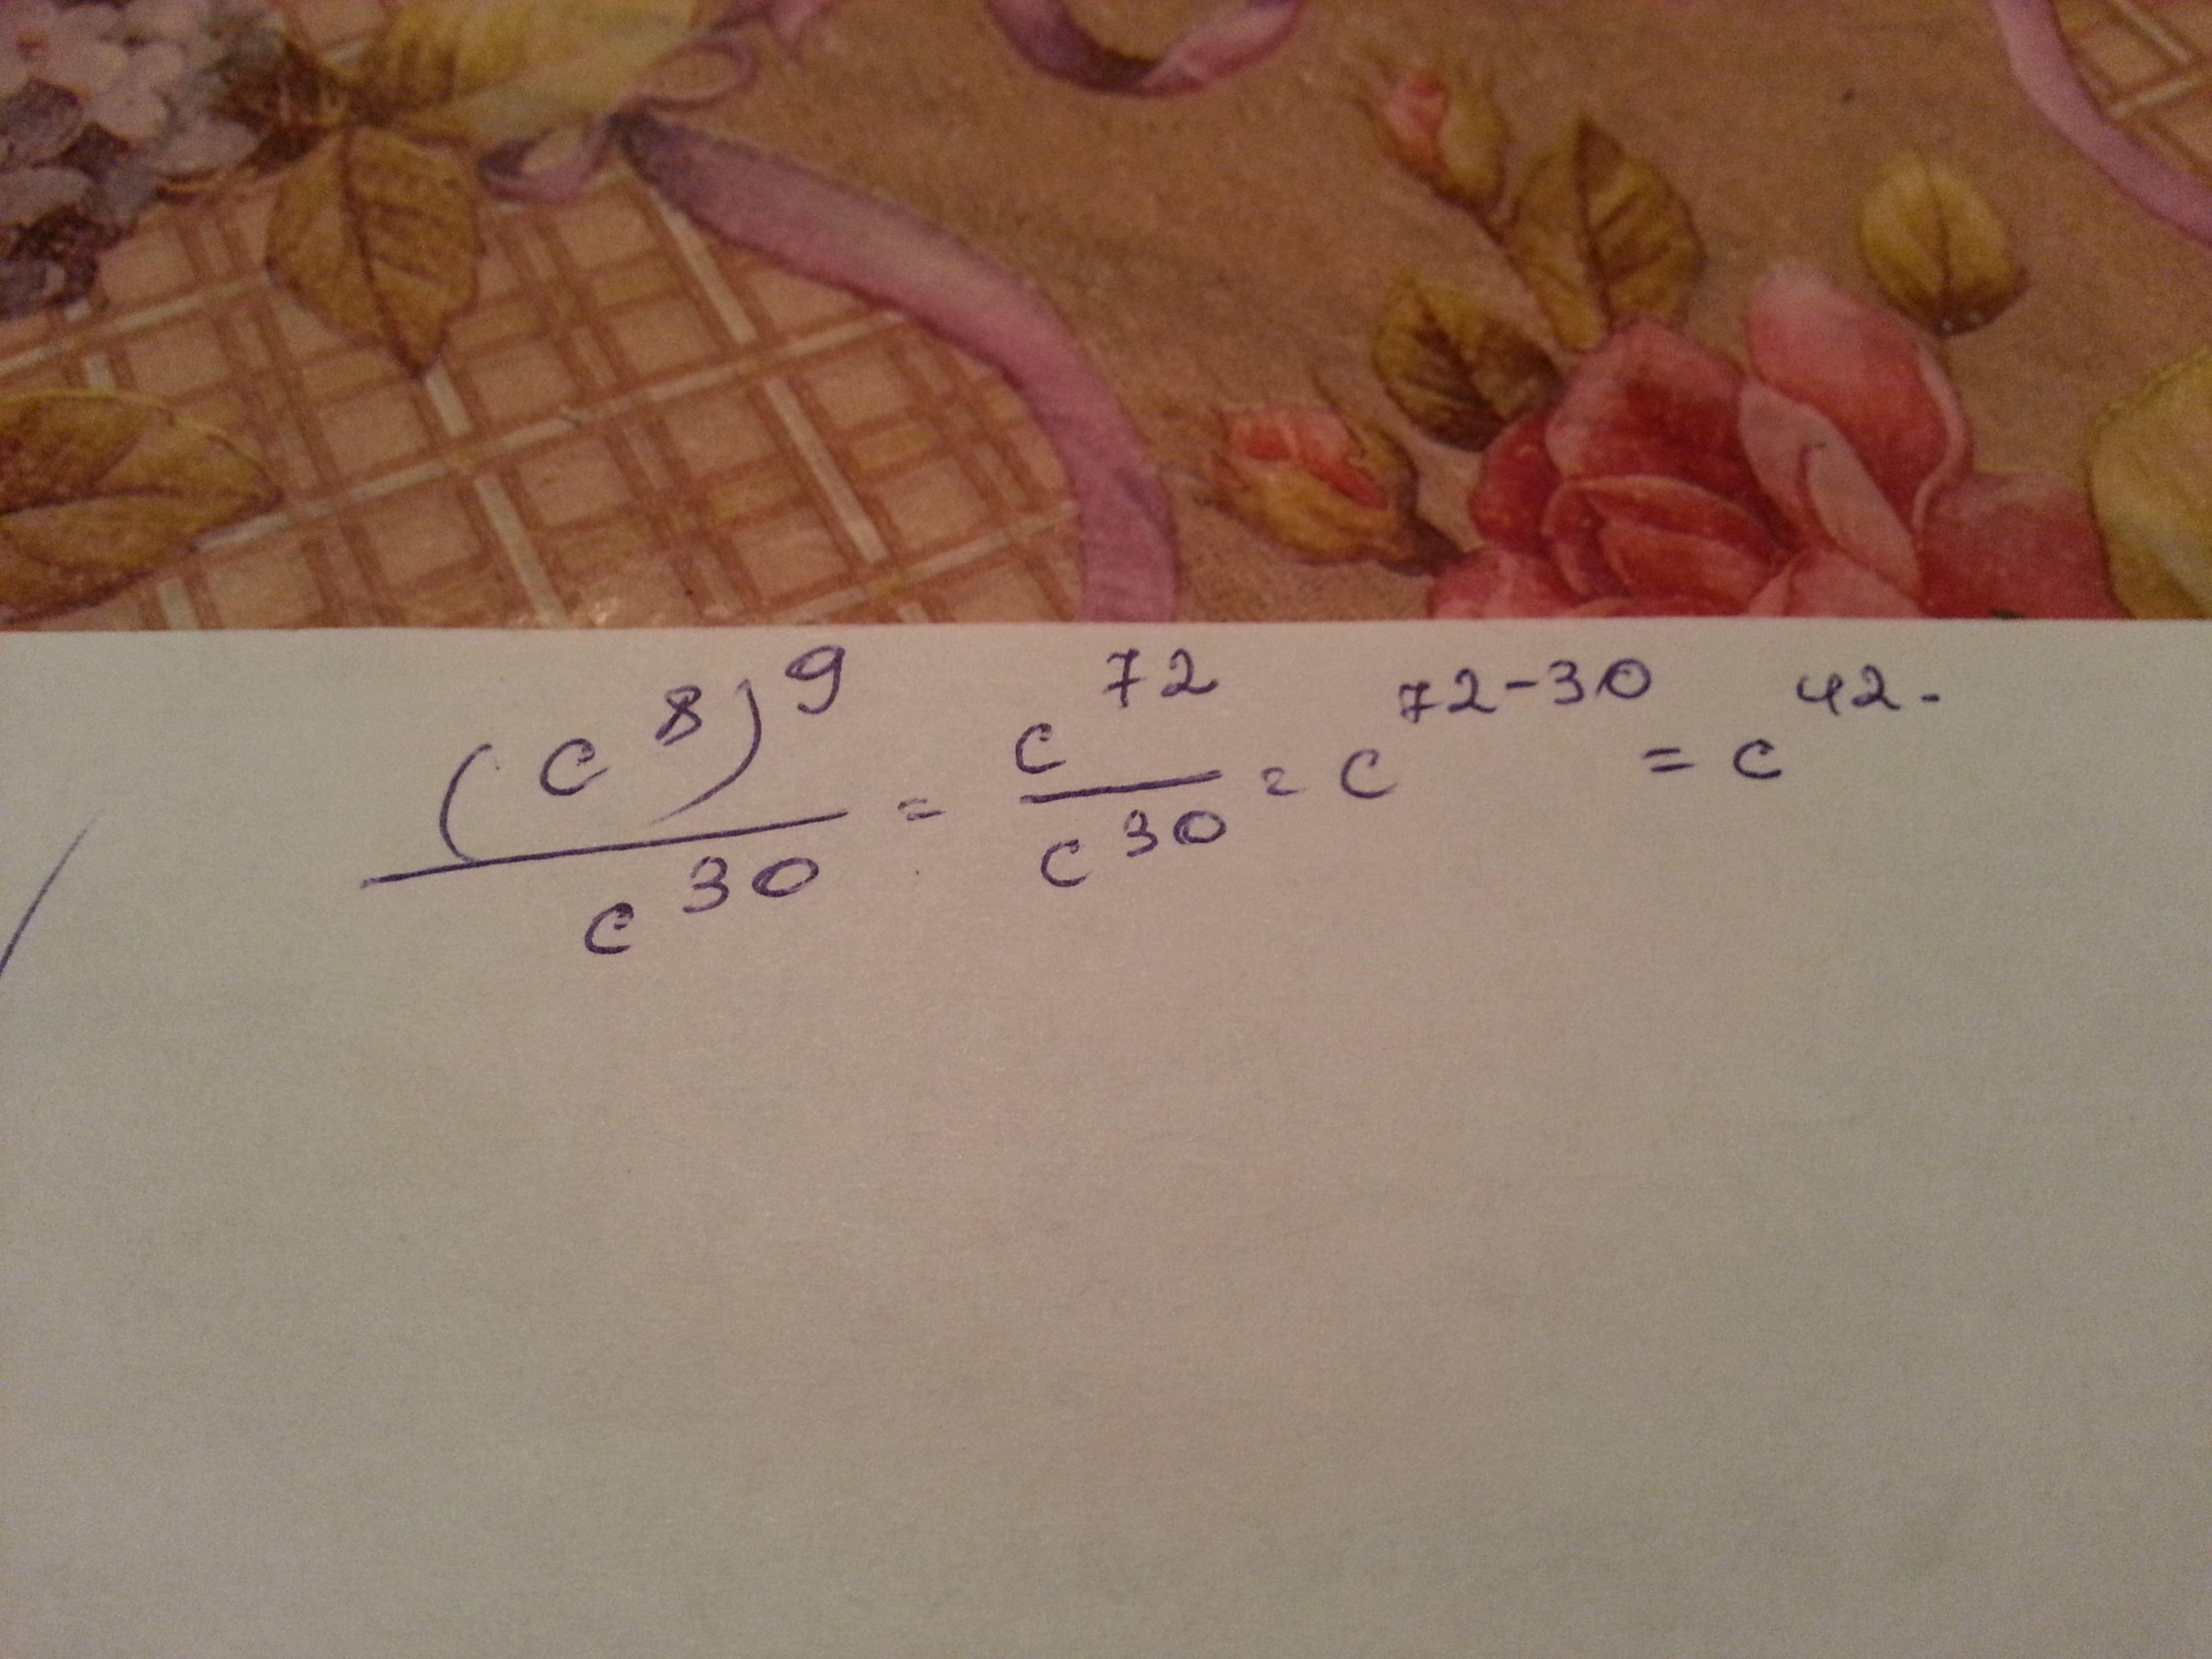 (c^8)^9 / c^30 = c^72 / c^30 = c^72-30 = c^42.